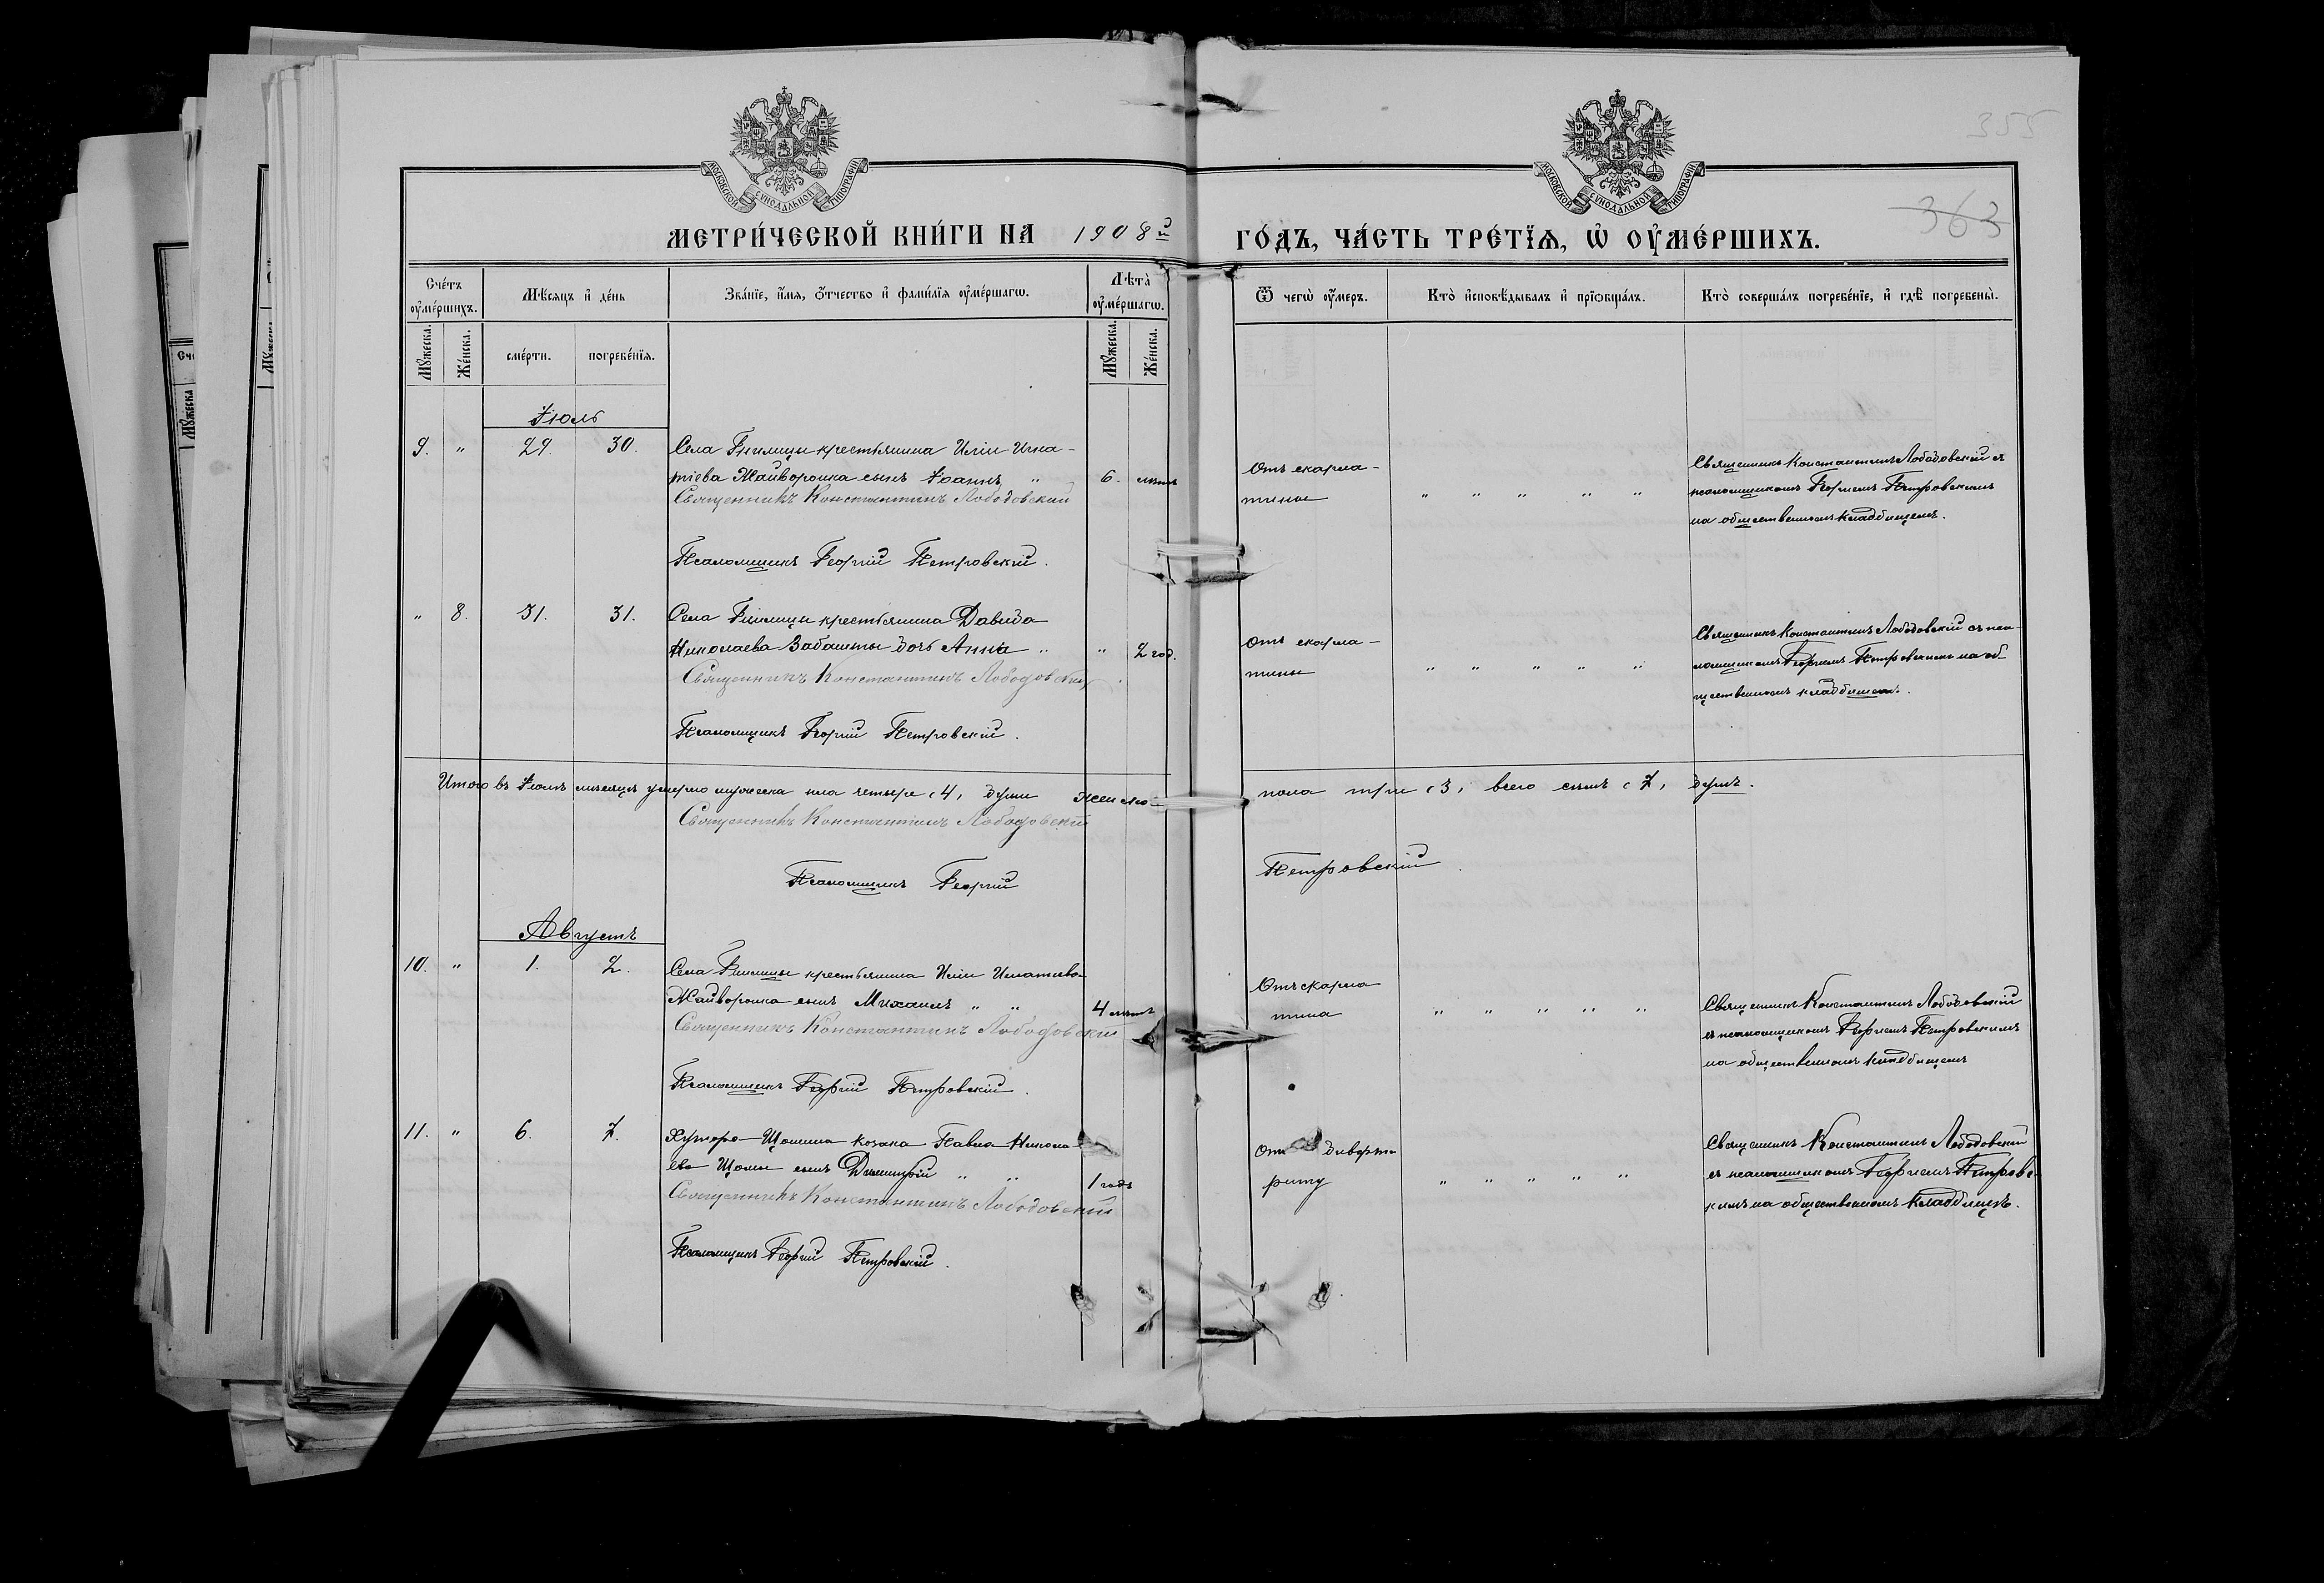 355
363
МОСКОВСКОЙ СѴНОДАЛЬНОЙ ТИПОГРАФІИ
МОСКОВСКОЙ СѴНОДАЛЬНОЙ ТИПОГРАФІИ
МЕТРИ́ЧЕСКОЙ КНИ́ГИ НА 1908й ГО́ДЪ, ЧА́СТЬ ТРЕ́ТЇѦ, Ѡ҆ ОУ҆МЕ́РШИХЪ.
Сче́тъ оу҆ме́ршихъ.
Мѣ́сяцъ и҆ де́нь
Зва́нїе, и҆́мя, ѻ҆́тчество и҆ фами́лїя оу҆ме́ршагѡ.
Лѣта̀ оу҆ме́ршагѡ.
Ѿ чегѡ̀ оу҆́меръ.
Кто̀ и҆сповѣ́дывалъ и҆ прїѡбща́лъ.
Кто̀ соверша́лъ погребе́нїе, и҆ гдѣ̀ погребены̀.
Мꙋжеска.
Же́нска.
сме́рти.
погребе́нїя.
Мꙋжеска.
Же́нска.
Іюль
9. " 29. 30. Села крестьянина Иліи Игна-
тіева Майборошка сынъ Іоаннъ " 6. лѣтъ
Священникъ Константинъ Лободовский
Псаломщикъ Георгій Петровскій.
Отъ скарла-
тины " " " " "
Священникъ Константинъ Лободовскій съ
псаломщикомъ Георгіемъ Петровскимъ
на общественномъ кладбищемъ.
" 8. 31. 31. Села крестьянина Давида
Николаева Забашты дочь Анна " " 2 год.
Священникъ Константинъ Лободовскій
Псаломщикъ Георгій Петровскій.
Отъ скарла-
тины " " " " "
Священникъ Константинъ Лободовскій съ пса-
ломщикомъ Георгіемъ Петровскимъ на об-
щественномъ кладбищемъ.
Итого въ Іюлѣ мѣсяцѣ умерло мужеска пола четыре (4) души женско- пола три (3) всего семь (7) душъ.
Священникъ Константинъ Лободовскій
Псаломщикъ Георгій Петровскій.
Августъ
10. " 1. 2. Села крестьянина Иліи Игнатіева
Майборошка сынъ Михаилъ " " 4 лѣтъ
Священникъ Константинъ Лободовский
Псаломщикъ Георгій Петровскій.
Отъ скарла
тина " " " " "
Священникъ Константинъ Лободовскій
съ псаломщикомъ Георгіемъ Петровскимъ
на общественномъ кладбищемъ
11. " 6. 7. Хутора козака Павла Никола-
ева Щомы сынъ Димитрій " " 1 годъ
Священникъ Константинъ Лободовский
Псаломщикъ Георгій Петровскій.
Отъ диверти
риту " " " " "
Священникъ Константинъ Лободовскій
съ псаломщикомъ Георгіемъ Петровс-
кимъ на общественномъ кладбищѣ.